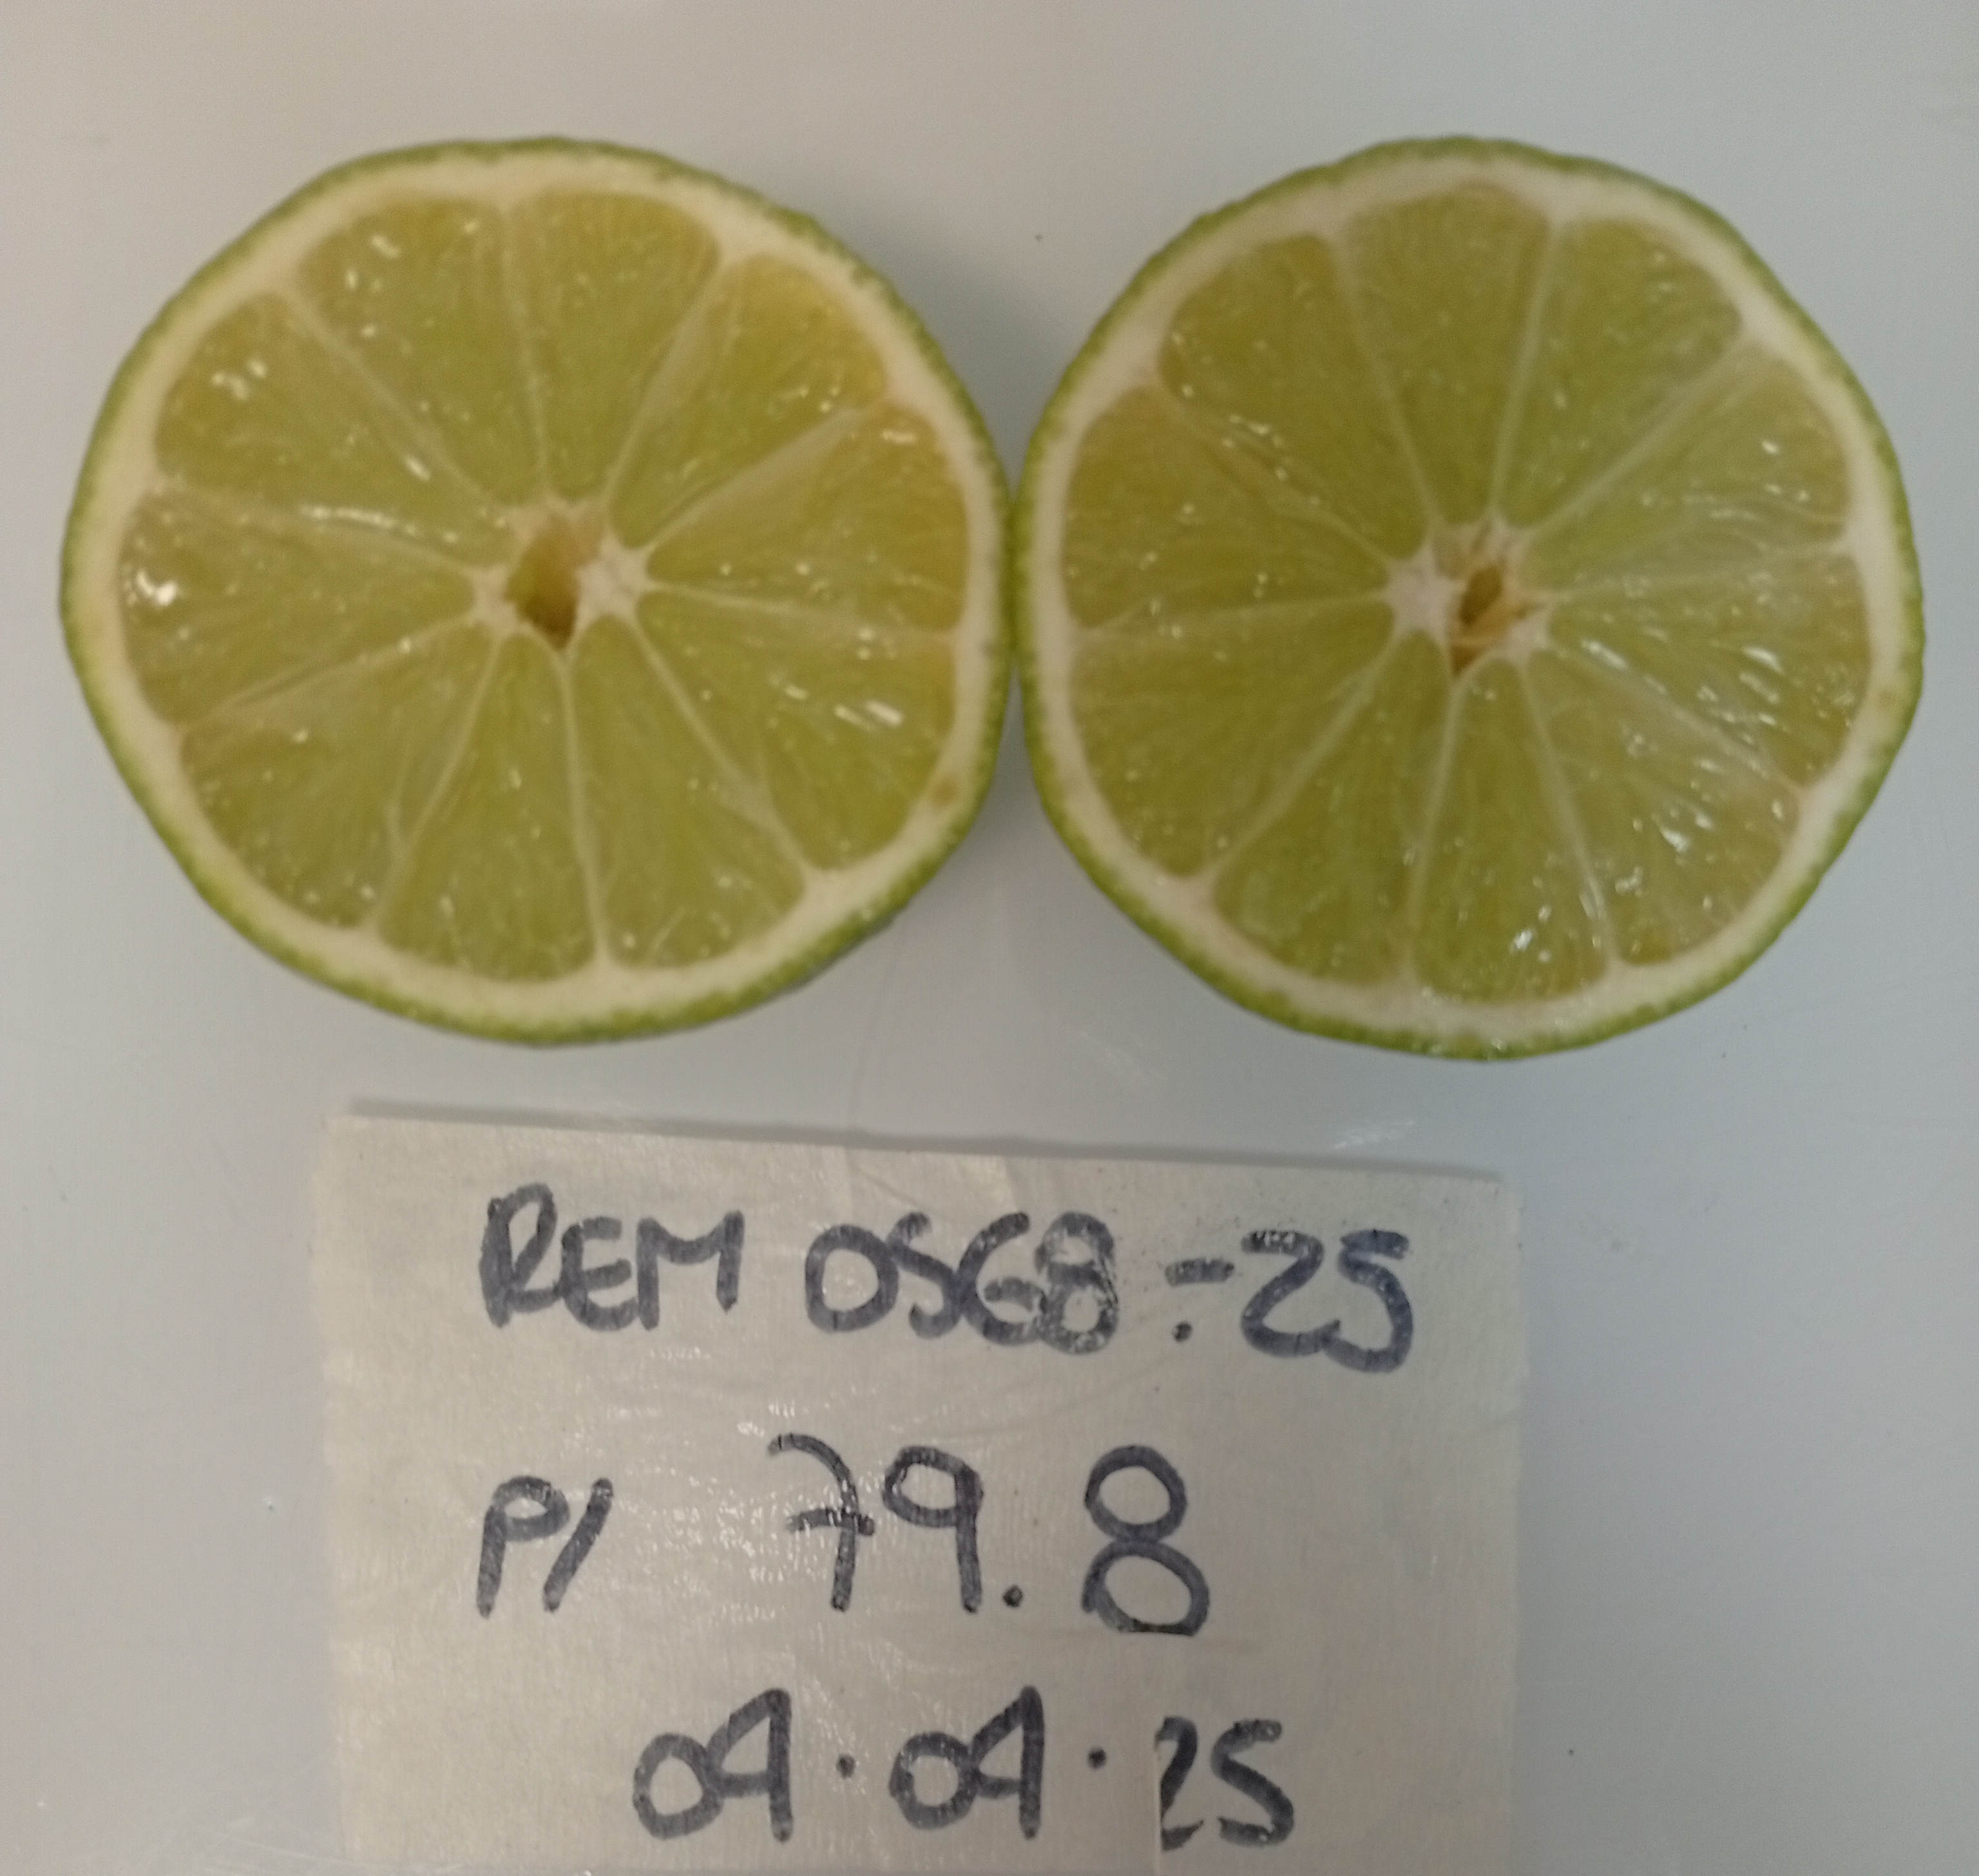 REM 0568 :- 25
P/ 79.8
04.04.25